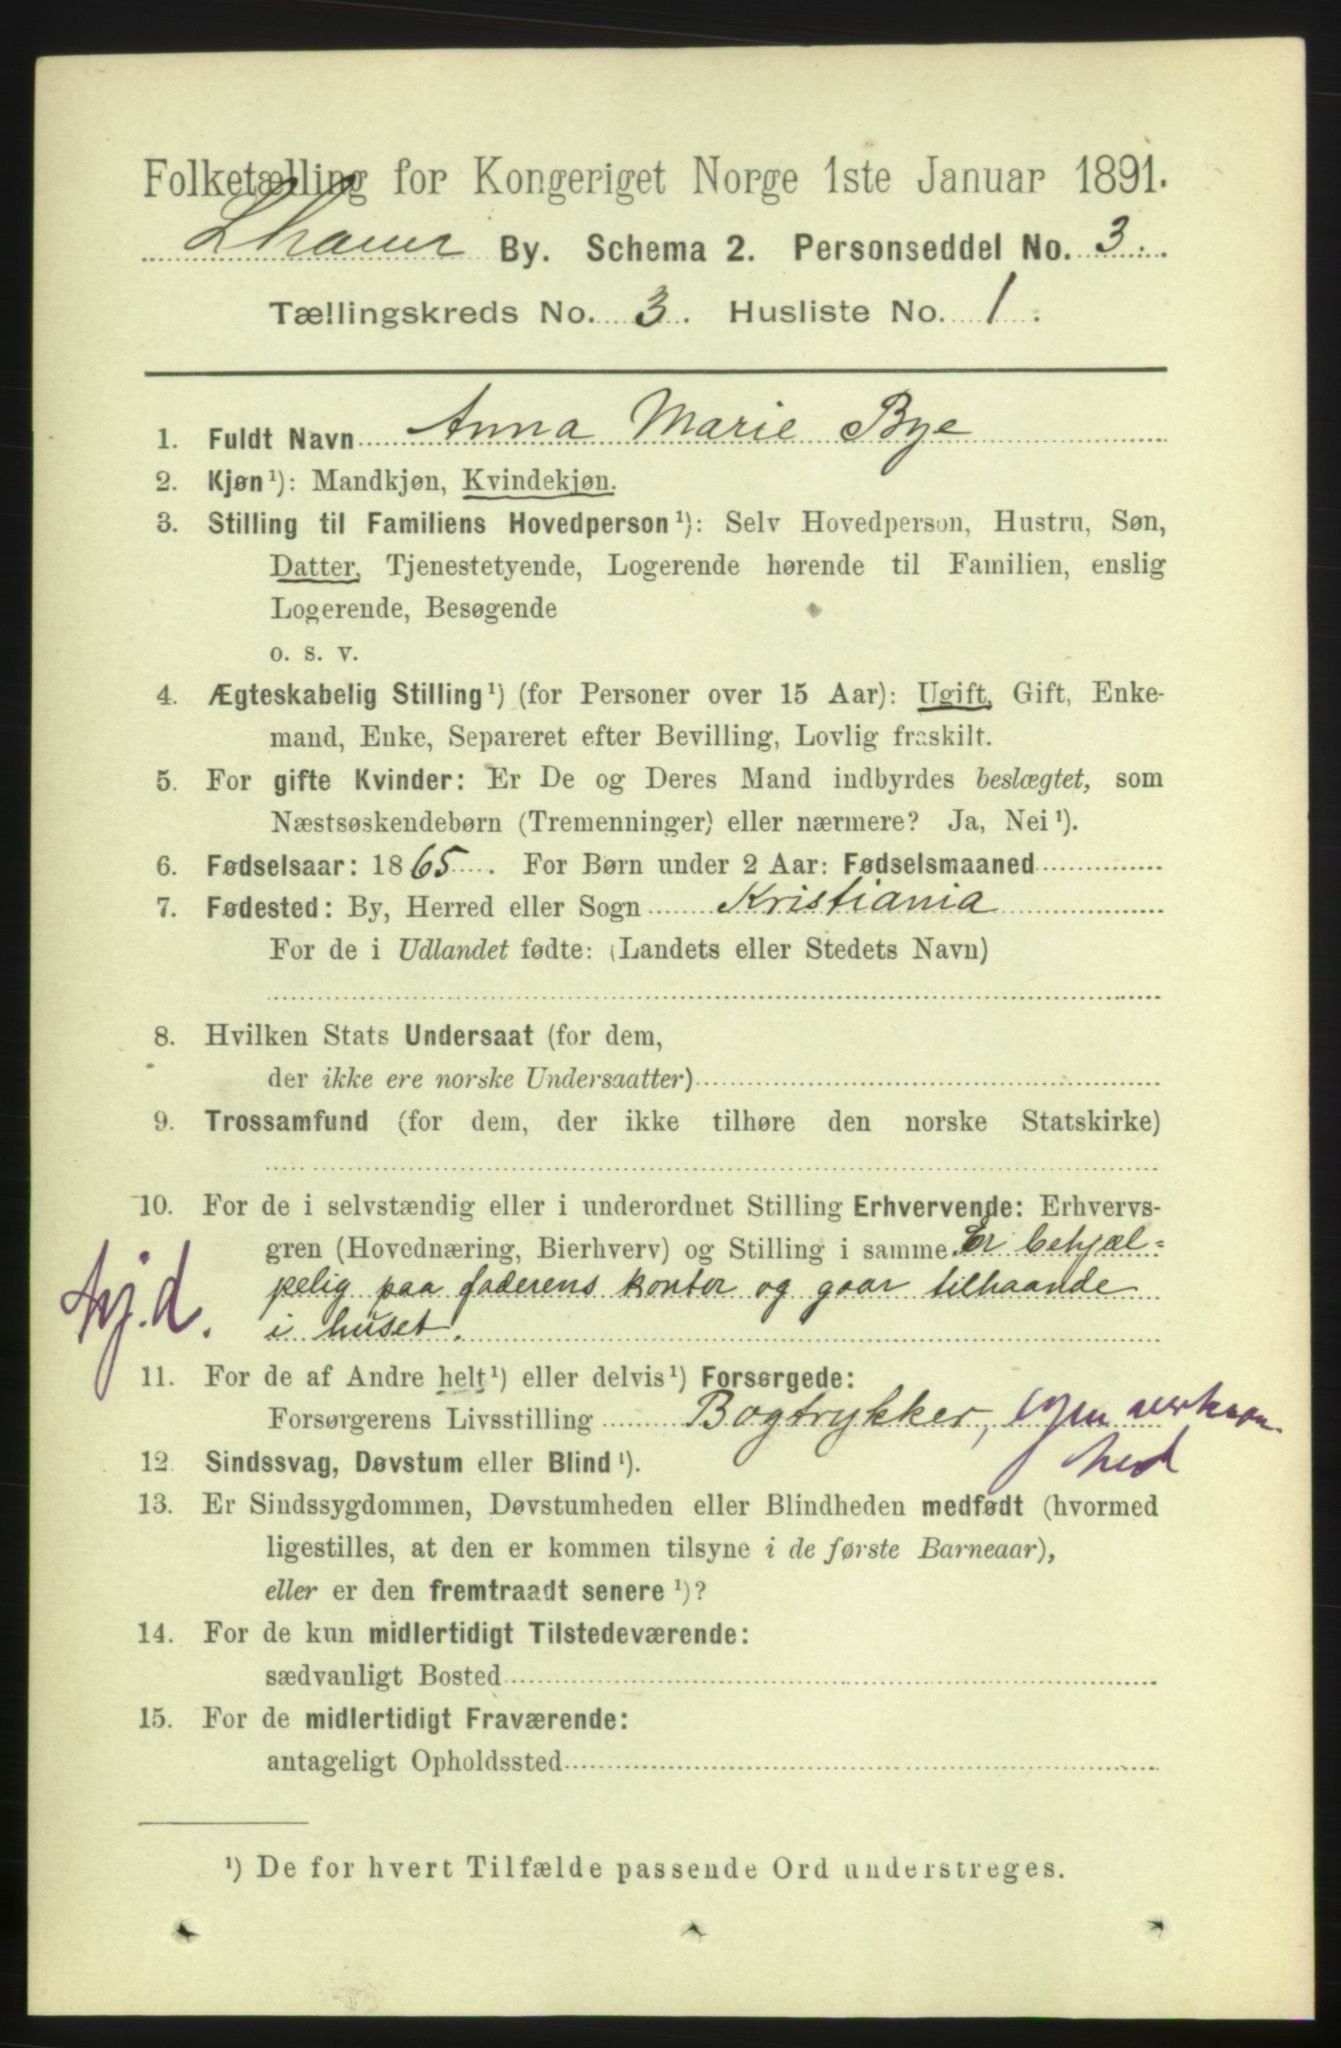 Folketælling for Kongeriget Norge 1ste Januar 1891.
Lhamer By. Schema 2. Personseddel No. 3.
Tællingskreds No. 3. Husliste No. 1.
1. Fuldt Navn Anna Marie Bye
2. Kjøn¹): Mandkjøn, Kvindekjøn.
3. Stilling til Familiens Hovedperson¹): Selv Hovedperson, Hustru, Søn,
Datter, Tjenestetyende, Logerende hørende til Familien, enslig
Logerende, Besøgende
o. s. v.
4. Ægteskabelig Stilling¹) (for Personer over 15 Aar): Ugift, Gift, Enke-
mand, Enke, Separeret efter Bevilling, Lovlig fraskilt.
5. For gifte Kvinder: Er De og Deres Mand indbyrdes beslægtet, som
Næstsøskendebørn (Tremenninger) eller nærmere? Ja, Nei¹).
6. Fødselsaar: 1865. For Børn under 2 Aar: Fødselsmaaned
7. Fødested: By, Herred eller Sogn Kristiania
For de i Udlandet fødte: (Landets eller Stedets Navn)
8. Hvilken Stats Undersaat (for dem,
der ikke ere norske Undersaatter)
9. Trossamfund (for dem, der ikke tilhøre den norske Statskirke)
10. For de i selvstændig eller i underordnet Stilling Erhvervende: Erhvervs-
gren (Hovednæring, Bierhverv) og Stilling i samme Er behjæl=
pelig paa faderens kontor og gaar tilhaande
i huset.
hj.d.
11. For de af Andre helt¹) eller delvis¹) Forsørgede:
Forsørgerens Livsstilling Bogtrykker, egen virksom
hed
12 Sindssvag, Døvstum eller Blind¹).
13. Er Sindssygdommen, Døvstumheden eller Blindheden medfødt (hvormed
ligestilles, at den er kommen tilsyne i de første Barneaar),
eller er den fremtraadt senere¹)?
14. For de kun midlertidigt Tilstedeværende:
sædvanligt Bosted
15. For de midlertidigt Fraværende:
antageligt Opholdssted
¹) De for hvert Tilfælde passende Ord understreges.